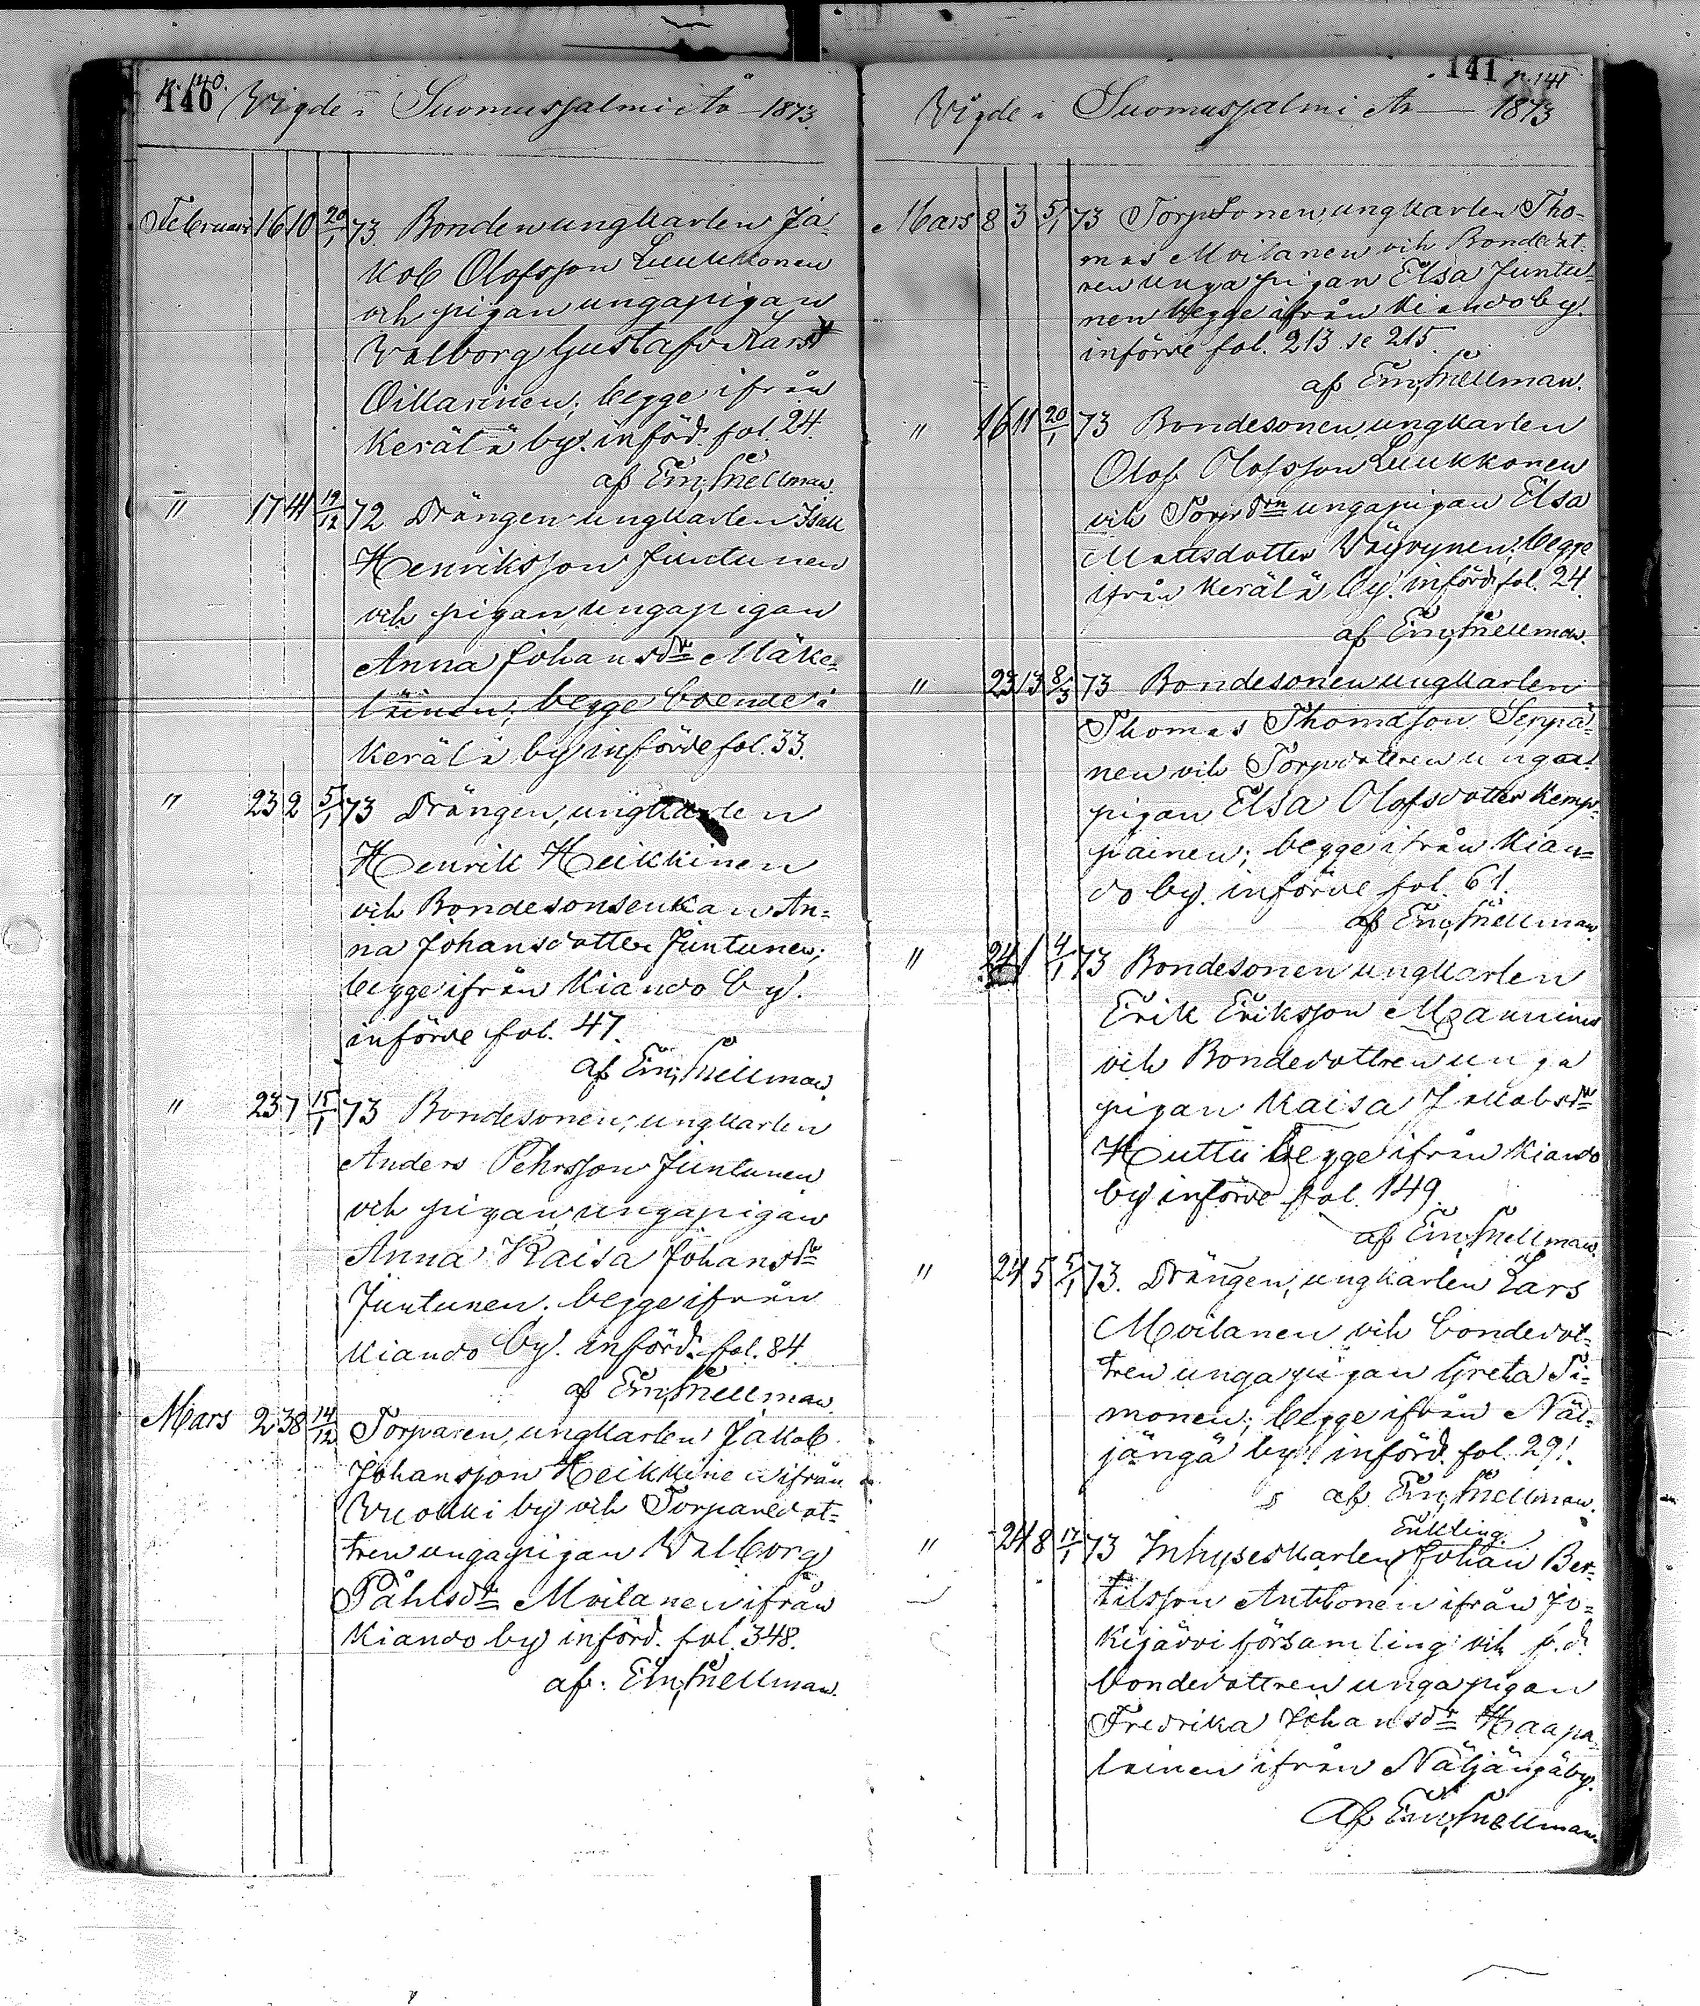 p. 140.
140 Vigde i Suomussalmi År 1873.
Februari 16 10 20/1 73 Bonden ungkarlen Ja-
kob Olofsson Luukkonen
och pigan unga pigan
Valborg Gustafsd:r
Oikarinen, begge ifrån
Kerälä by. införd. fol. 24.
af Em. Snellman.
" 17 41 19/12 72 Drängen ungkarlen Isak
Henriksson Juntunen
och pigan, unga pigan
Anna Johansdr Mäke-
läinen, begge boende i
Kerälä by införde fol. 33.
" 23 2 5/1 73 Drängen, ungkarlen
Henrik Heikkinen
och Bondesonsenkan An-
na Johansdotter Juntunen;
begge ifrån Kiando by.
införde fol. 47.
af Em. Snellman.
" 23 7 15/1 73 Bondesonen, ungkarlen
Anders Pehrsson Juntunen
och pigan, unga pigan
Anna Kaisa Johansdr
Juntunen. begge ifrån
Kiando by. införd. fol. 84.
af Em. Snellman.
Mars 2 38 14/12 Torparen, ungkarlen Jakob
Johansson Heikkinen ifrån
Vuokki by och Torparedot-
tren unga pigan Valborg
Påhlsdr Moilanen ifrån
Kiando by införd. fol. 348.
af. Em. Snellman.
141 p. 141
Vigde i Suomussalmi År 1873
Mars 8 3 5/1 73 Torpsonen, ungkarlen Tho-
mas Moilanen och Bondedot-
ren unga pigan Elsa Juntu-
nen begge ifrån Kiando by.
införde fol. 213 se 215.
af Em. Snellman.
" 16 11 20/1 73 Bondesonen, ungkarlen
Olof Olofsson Luukkonen
och Torpdrn unga pigan Elsa
Mattsdotter Väyrynen; begge
ifrån Kerälä by. införd. fol. 24.
af Em. Snellman.
" 23 13 8/3 73 Bondesonen ungkarlen
Thomas Thomasson Seppä-
nen och Torpdottren unga
pigan Elsa Olofsdotter Kemp-
painen; begge ifrån Kian-
do by. införde fol. 61.
af Em. Snellman.
" 24 1 4/1 73 Bondesonen ungkarlen
Erik Eriksson Manninen
och Bondedottren unga
pigan Kaisa Jakobsdr
Huttu begge ifrån Kiando
by införde fol. 149.
af Em. Snellman.
" 24 5 5/1 73. Drängen, ungkarlen Lars
Moilanen och bondedot-
tren unga pigan Greta Ti-
monen; begge ifrån Näl-
jängä by. införd. fol. 291.
af Em. Snellman.
Enkling.
" 24 8 17/1 73 Inhyseskarlen Johan Ber-
tilsson Anttonen ifrån Jo-
kijärvi församling och f. d.
bondedottren unga pigan
Fredrika Johansdr Haapa-
lainen ifrån Näljängä by.
Af Em. Snellman.